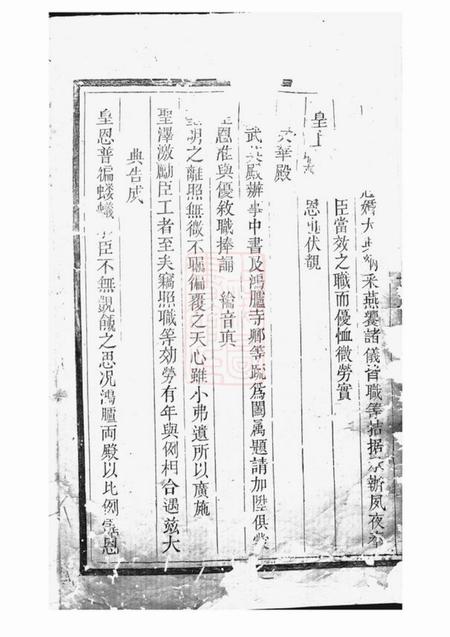 大納采燕饗諸儀皆職等拮据夙夜
臣當效之職而優恤微勞實
恩也伏覩
皇上
華殿
武殿辦事中書及鴻臚寺卿等疏爲閣屬題請加陞俱
恩准與優敘職捧誦綸音真
明之離照無微不矚徧覆之天心雖小弗遺所以廣施
聖澤激勵臣工者至矣竊照職等効勞有年與例相合遇茲大
典告成
皇恩普徧螻蟻臣不無覬覦之思况鴻臚両殿以比例恩